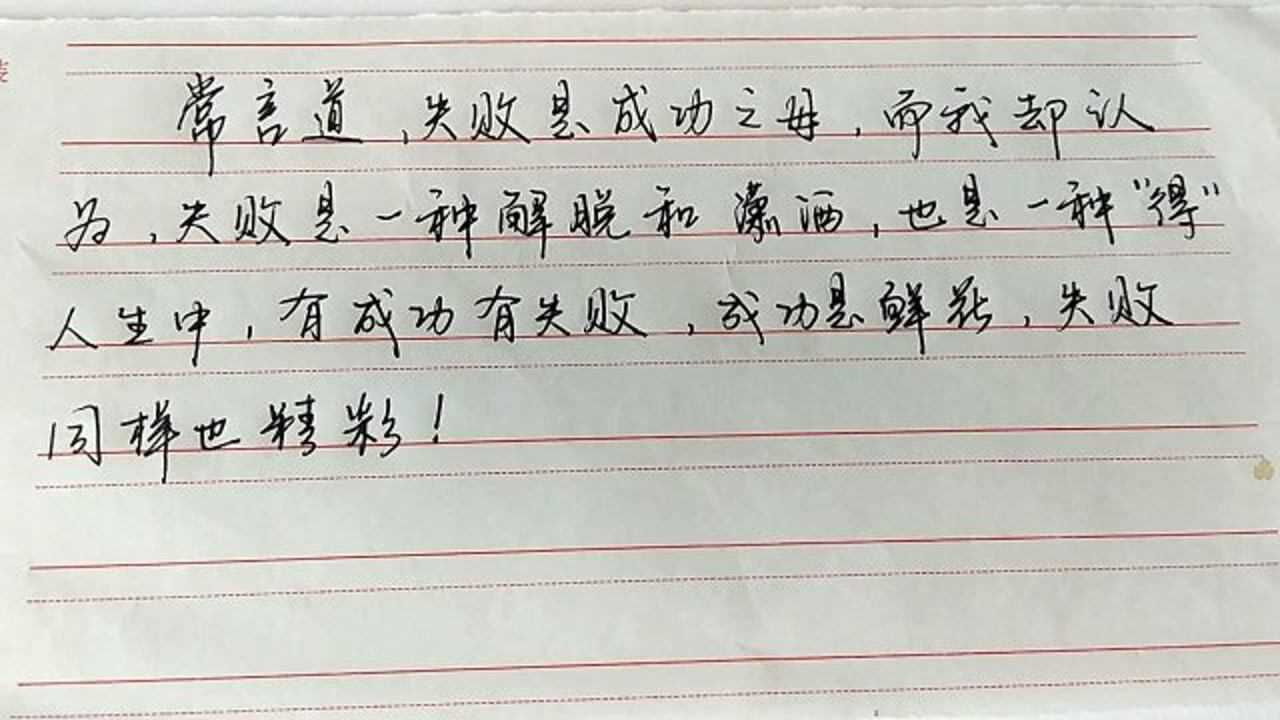 常言道，失败是成功之母，而我却认
为，失败是一种解脱和潇洒，也是一种“得”
人生中，有成功有失败，成功是鲜花，失败
同样也精彩！